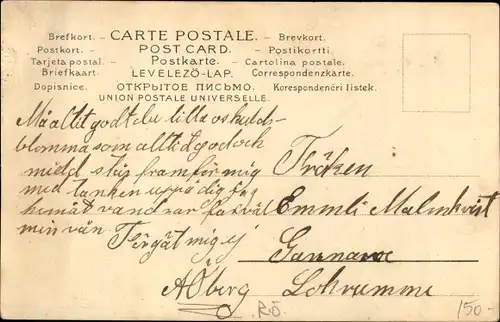 Brefkort. – CARTE POSTALE. – Brevkort.
Postkort. – POST CARD. – Postikortti.
Tarjeta postal. – Postkarte. – Cartolina postale.
Briefkaart. LEVELEZŐ-LAP. Correspondenzkarte.
Dopisnice. ОТКРЫТОЕ ПИСЬМО. Korespondenčni listek.
UNION POSTALE UNIVERSELLE.
Må alltid godt du lilla oskulds-
blomma som alltid god och
mild står framför mig
med tanken uppå dig jag
hemåt vandrar farväl
min vän Förgät mig ej
A Öberg
Fröken
Emmli Malmkvist
150-